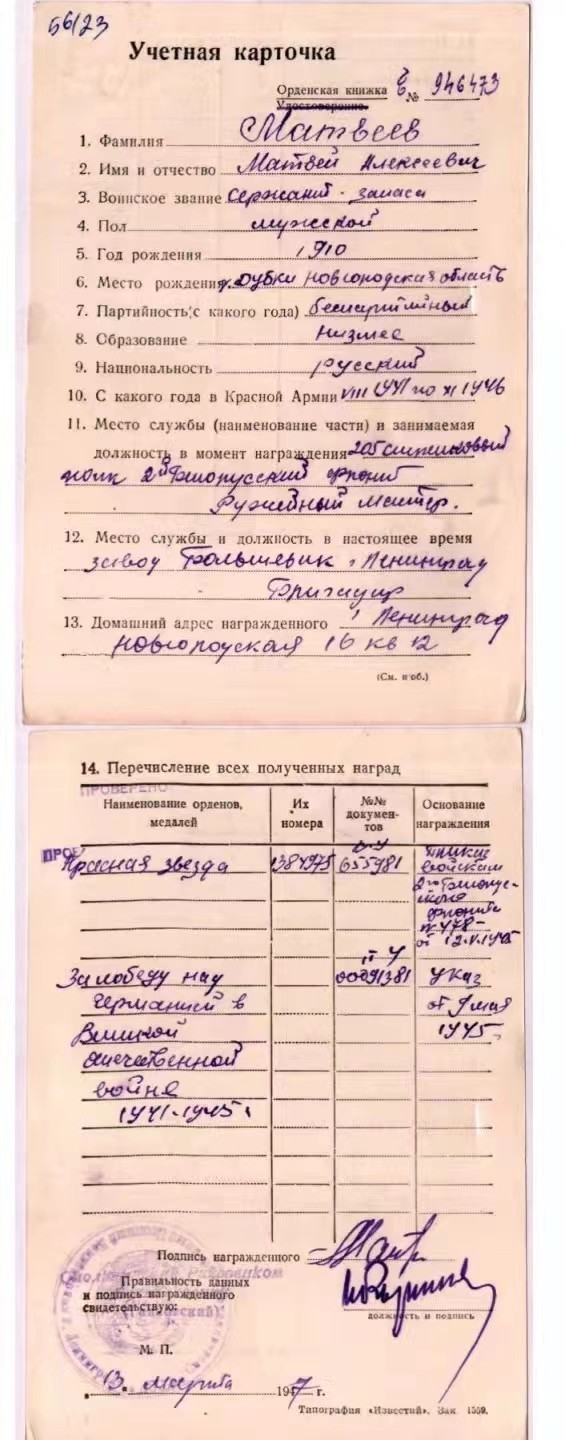 56/23
Учетная карточка
Орденская книжка № 946473
Удостоверение
1. Фамилия Матвеев
2. Имя и отчество Матвей Алексеевич
3. Воинское звание Сержант запаса
4. Пол мужской
5. Год рождения 1910
6. Место рождения д. Дубки Новгородская область
7. Партийность(с какого года) беспартийный
8. Образование низшее
9. Национальность русский
10. С какого года в Красной Армии VIII 1941 по XI 1946
11. Место службы (наименование части) и занимаемая
должность в момент награждения 205 стрелковый
полк 2й Белорусский фронт
Ружейный мастер.
12. Место службы и должность в настоящее время
завод Большевик г Ленинград
Бригадир
13. Домашний адрес награжденного г Ленинград
Новгородская 16 кв 12
(См. н об.)
14. Перечисление всех полученных наград
ПРОВЕРЕНО
Наименование орденов, медалей
Их номера
№№ документов
Основание награждения
ПРОВ
Красная звезда 1384975 655981 приказ
войскам
2го Белорус-
ского
фронта
№ 478
от 12.V.1945
За победу над 00091381 Указ
Германией в от 9 мая
Великой 1945
отечественной
войне
1941-1945г
Подпись награжденного
Правильность данных
и подпись награжденного
свидетельствую:
должность и подпись
М. П.
13 марта 1947 г.
Типография «Известий». Зак. 1559.